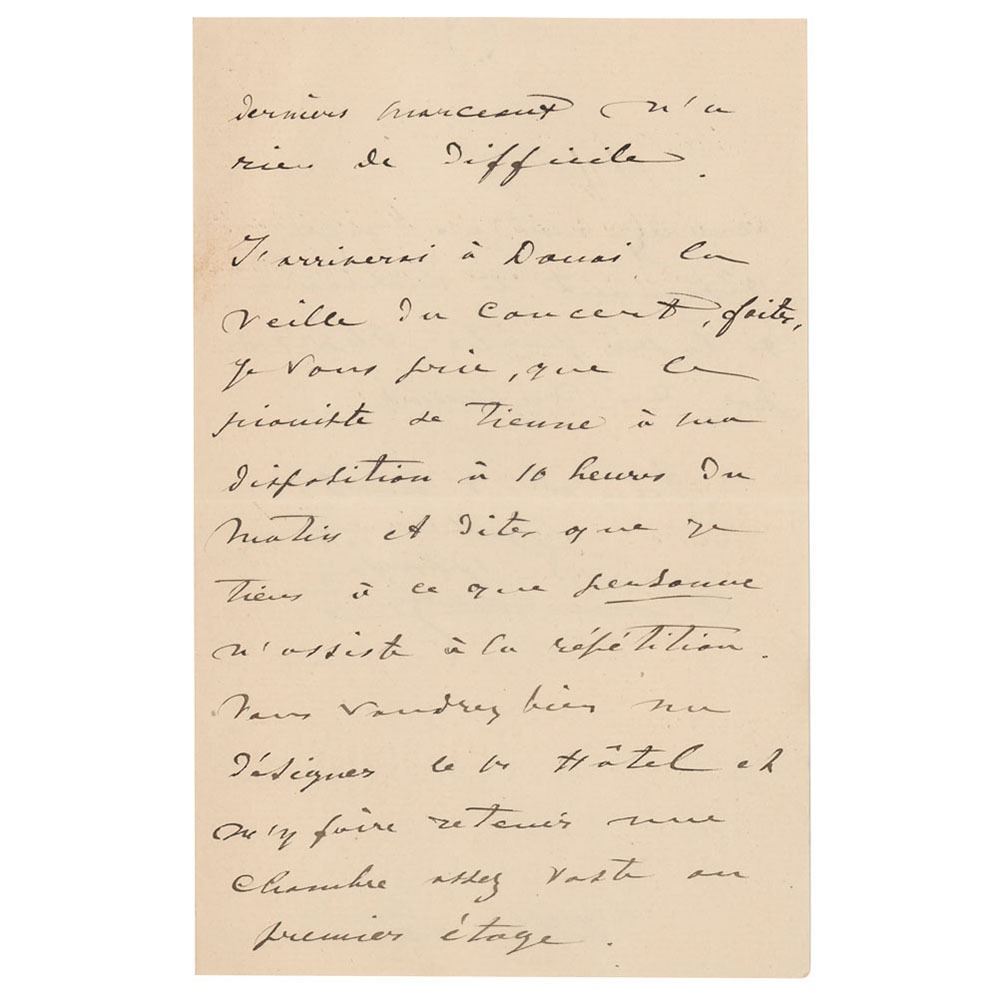 derniers morceaux n'a
rien de difficile.
J'arriverai à Douai la
veille du concert, faites,
je vous prie, que le
pianiste se tienne à ma
disposition à 10 heures du
matin et dites que je
tiens à ce que personne
n'assiste à la répétition.
Vous voudrez bien me
désigner le 1er Hôtel et
m'y faire retenir une
chambre assez vaste au
premier étage.